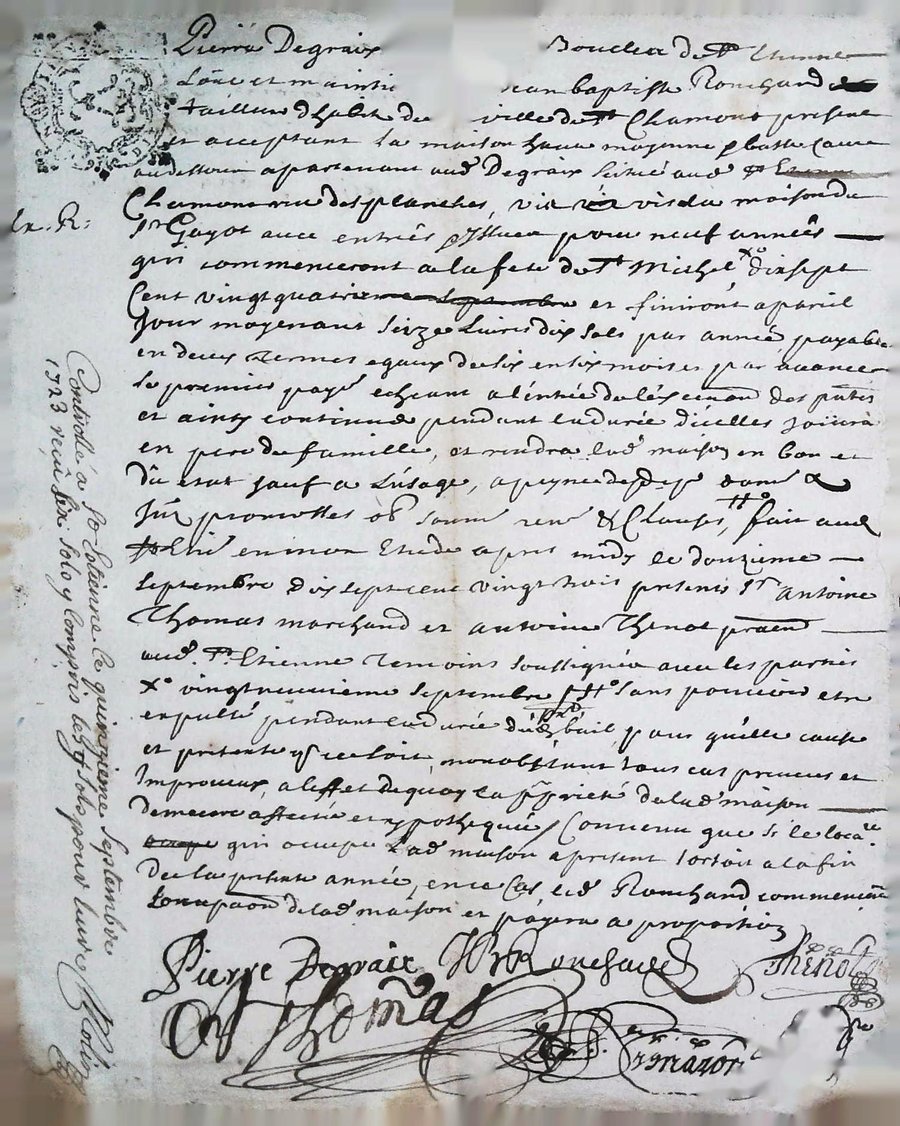 Pierre Degraix Boucher de St Etienne
Loüe et maintient Jean baptiste Rouchard
tailleur dhabits de ville de St Chamont present
et acceptant la maison haute moyenne & basse cave
au dessous apartenant aud Degraix scituée aud St Etienne
Ln. R.
Chamont rue des planches, vis vis du maison du
Sr Gayot avec entrés pour neuf années
qui commenceront a la fete de St Michel x.o dixsept
Cent vingt quatrieme septembre et finiront a pareil
Jour moyenant seize Livres dix sols par année payable
en deux termes egaux de six en six mois et par avance
le premier payé echeant a l'entrée
et ainsy continué pendant la durée d'icelles jouira
en pere de famille, et rendra lad maison en bon et
dû etat sauf a L'usage, a peyne de
Jur promettes ob soum ren & Clauses, fait aud
St Etne en mon Etude apres midy le douzieme
septembre dix sept cent vingt trois presents Sr Antoine
Thomas marchand et antoine Thenot praen
aud. St Etienne temoins soussignés avec les parties
x.o vingtneuvieme septembre sans pouvoir etre
expulsé pendant la durée dud bail, pour quelle cause
et pretexte que ce soit, nonobstant tous cas preveus et
Impreveus, a l'effet de quoy la pprieté de lad maison
demeure affectée et ypothequée / Convenu que si le loca.re
occupe qui occupe Lad maison a present sortoit a la fin
de la presente année, en ce Cas, led Rouchard commencera
Loccupaon de lad maison et payera a proportion
Pierre Degraix JB Rouchard Thenot
A Thomas
Controllé à St Etienne le quinzieme septembre
1723 reçu six sols y compris les